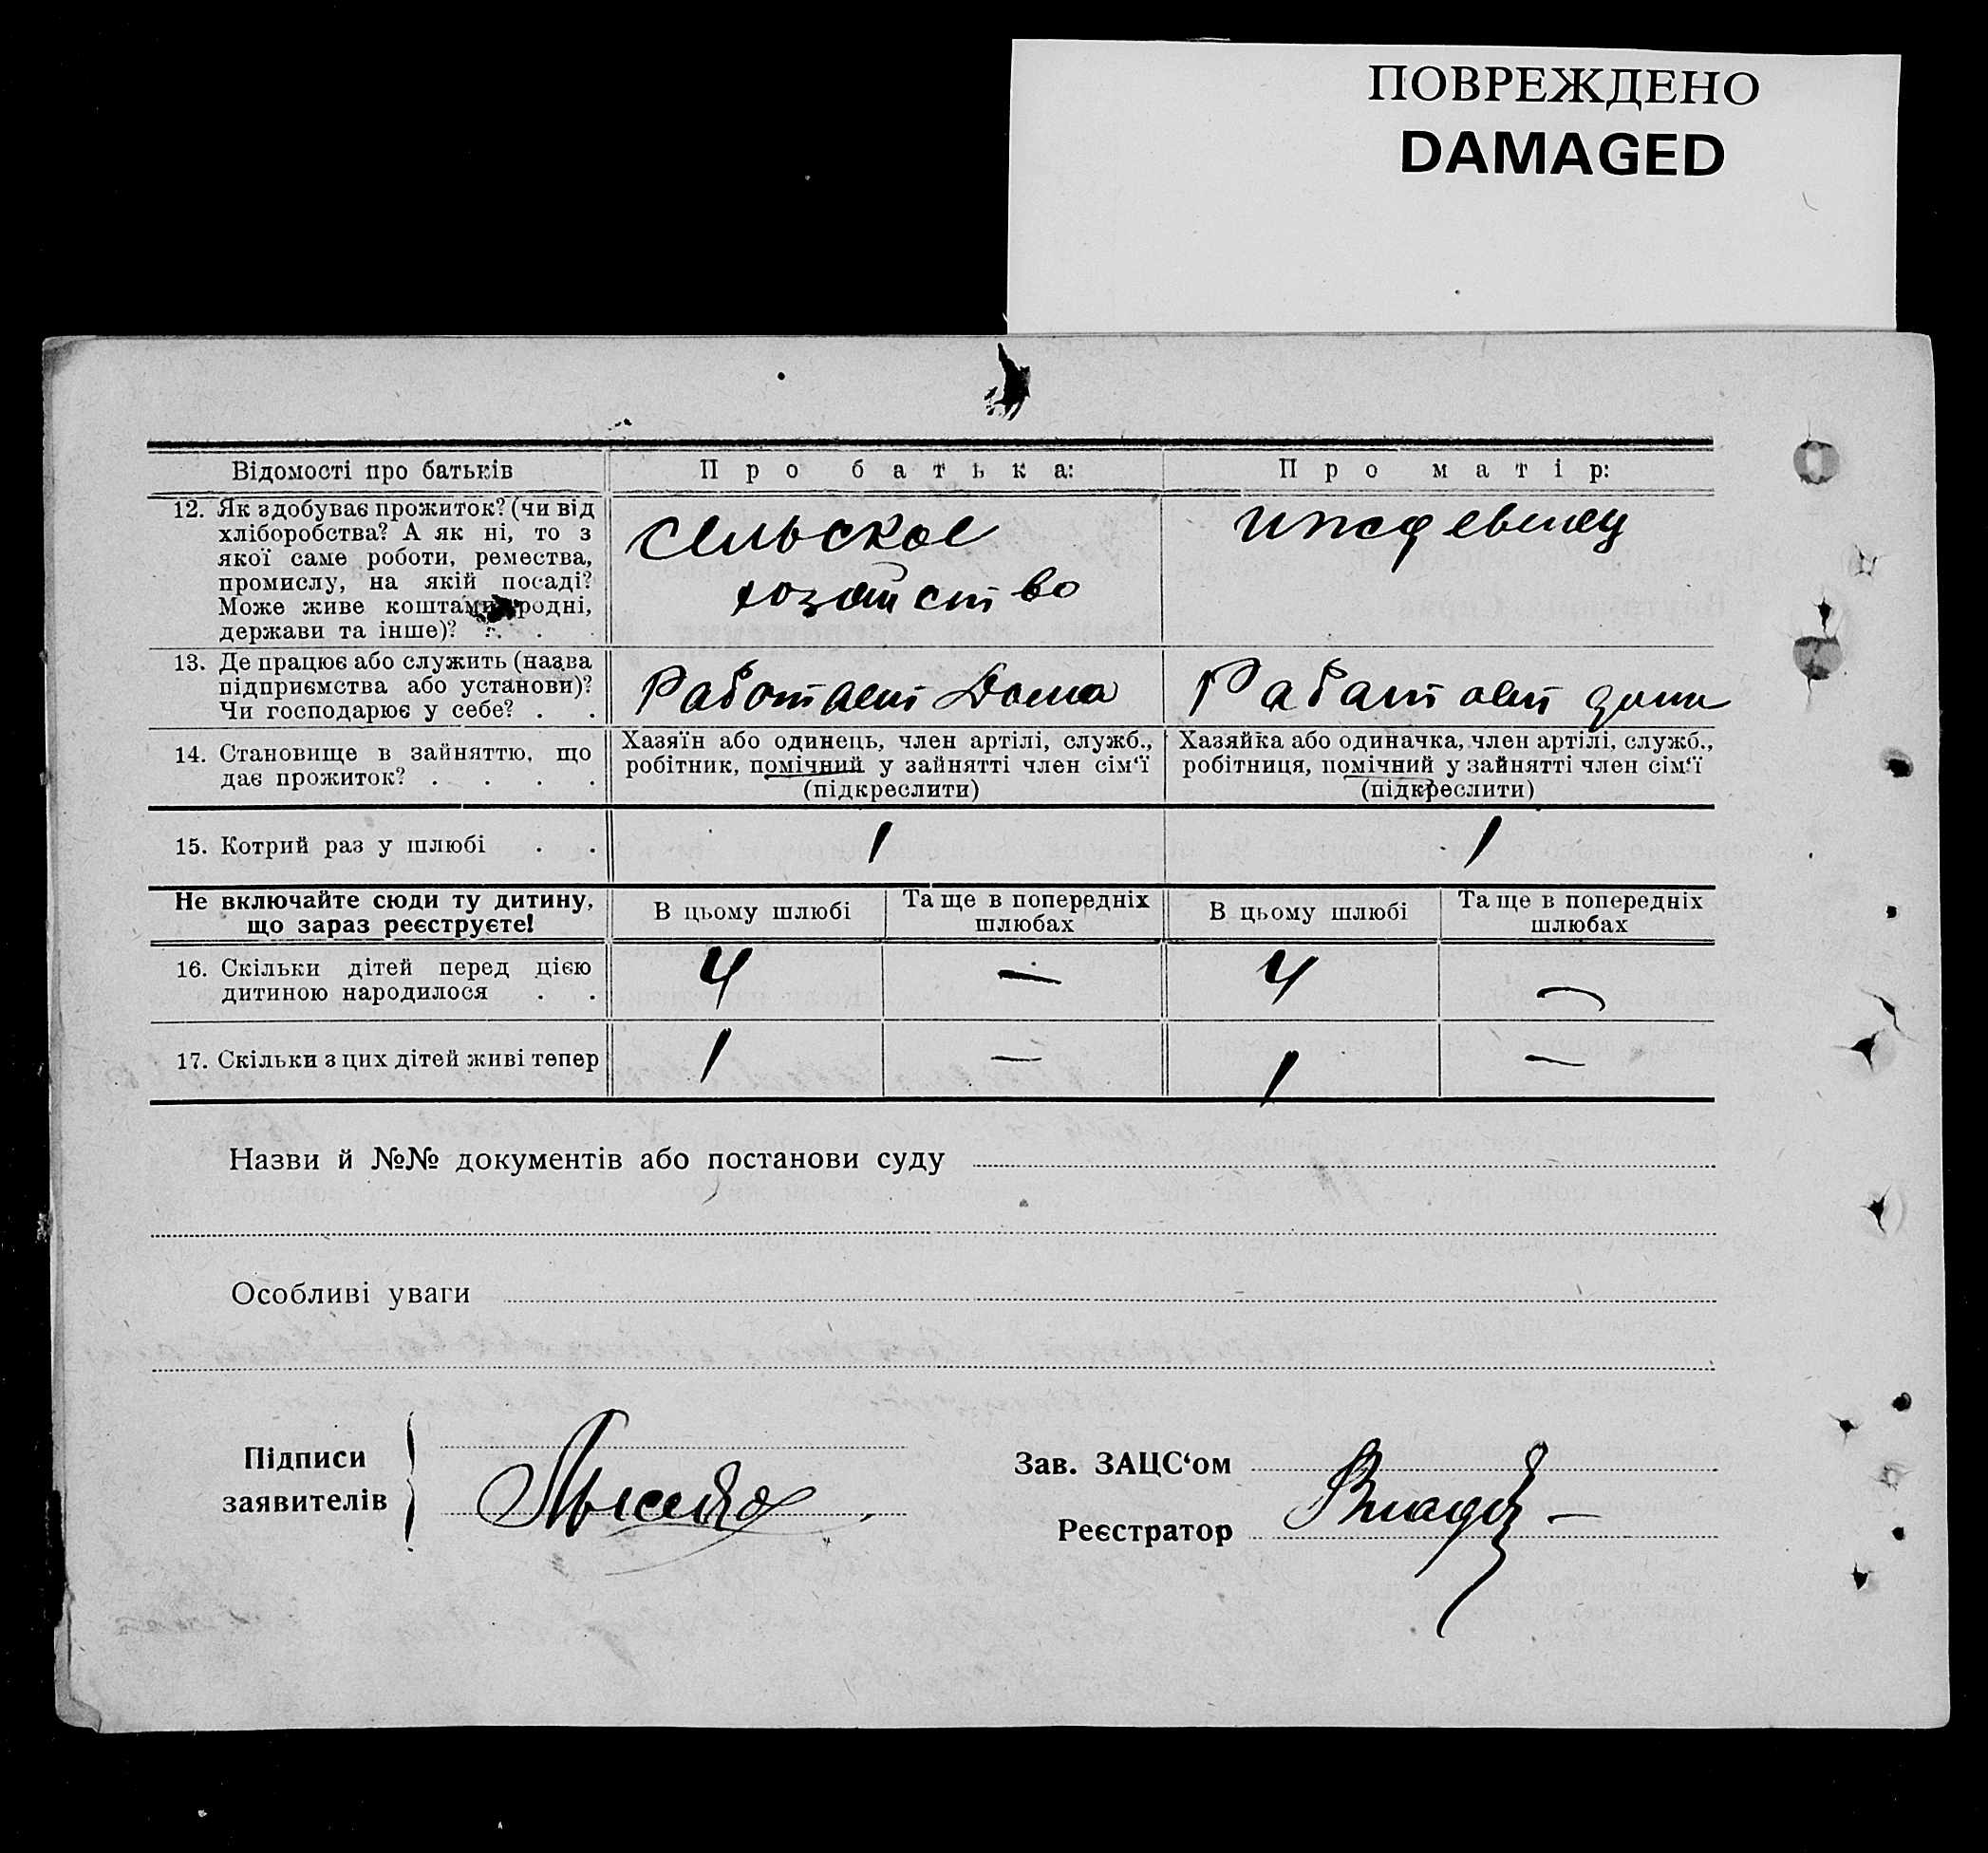 ПОВРЕЖДЕНО
DAMAGED
Відомості про батьків
Про батька:
Про матір:
12. Як здобуває прожиток? (чи від
хліборобства? А як ні, то з
якої саме роботи, ремества,
промислу, на якій посаді?
Може живе коштами родні,
держави та інше)? . .
Сельское
хозяйство
иждевенец
13. Де працює або служить (назва
підприємства або установи)?
Чи господарює у себе? . .
Работает Дома
Работает дома
14. Становище в зайняттю, що
дає прожиток? . . . .
Хазяїн або одинець, член артілі, служб.,
робітник, помічний у зайнятті член сім‘ї
(підкреслити)
Хазяйка або одиначка, член артілі, служб.,
робітниця, помічний у зайнятті член сім‘ї
(підкреслити)
15. Котрий раз у шлюбі . .
1
1
Не включайте сюди ту дитину,
що зараз реєструєте!
В цьому шлюбі
Та ще в попередніх
шлюбах
В цьому шлюбі
Та ще в попередніх
шлюбах
16. Скільки дітей перед цією
дитиною народилося . .
4
—
4
—
17. Скільки з цих дітей живі тепер
1
—
1
—
Назви й №№ документів або постанови суду
Особливі уваги
Підписи
заявителів
Зав. ЗАЦС‘ом
Реєстратор